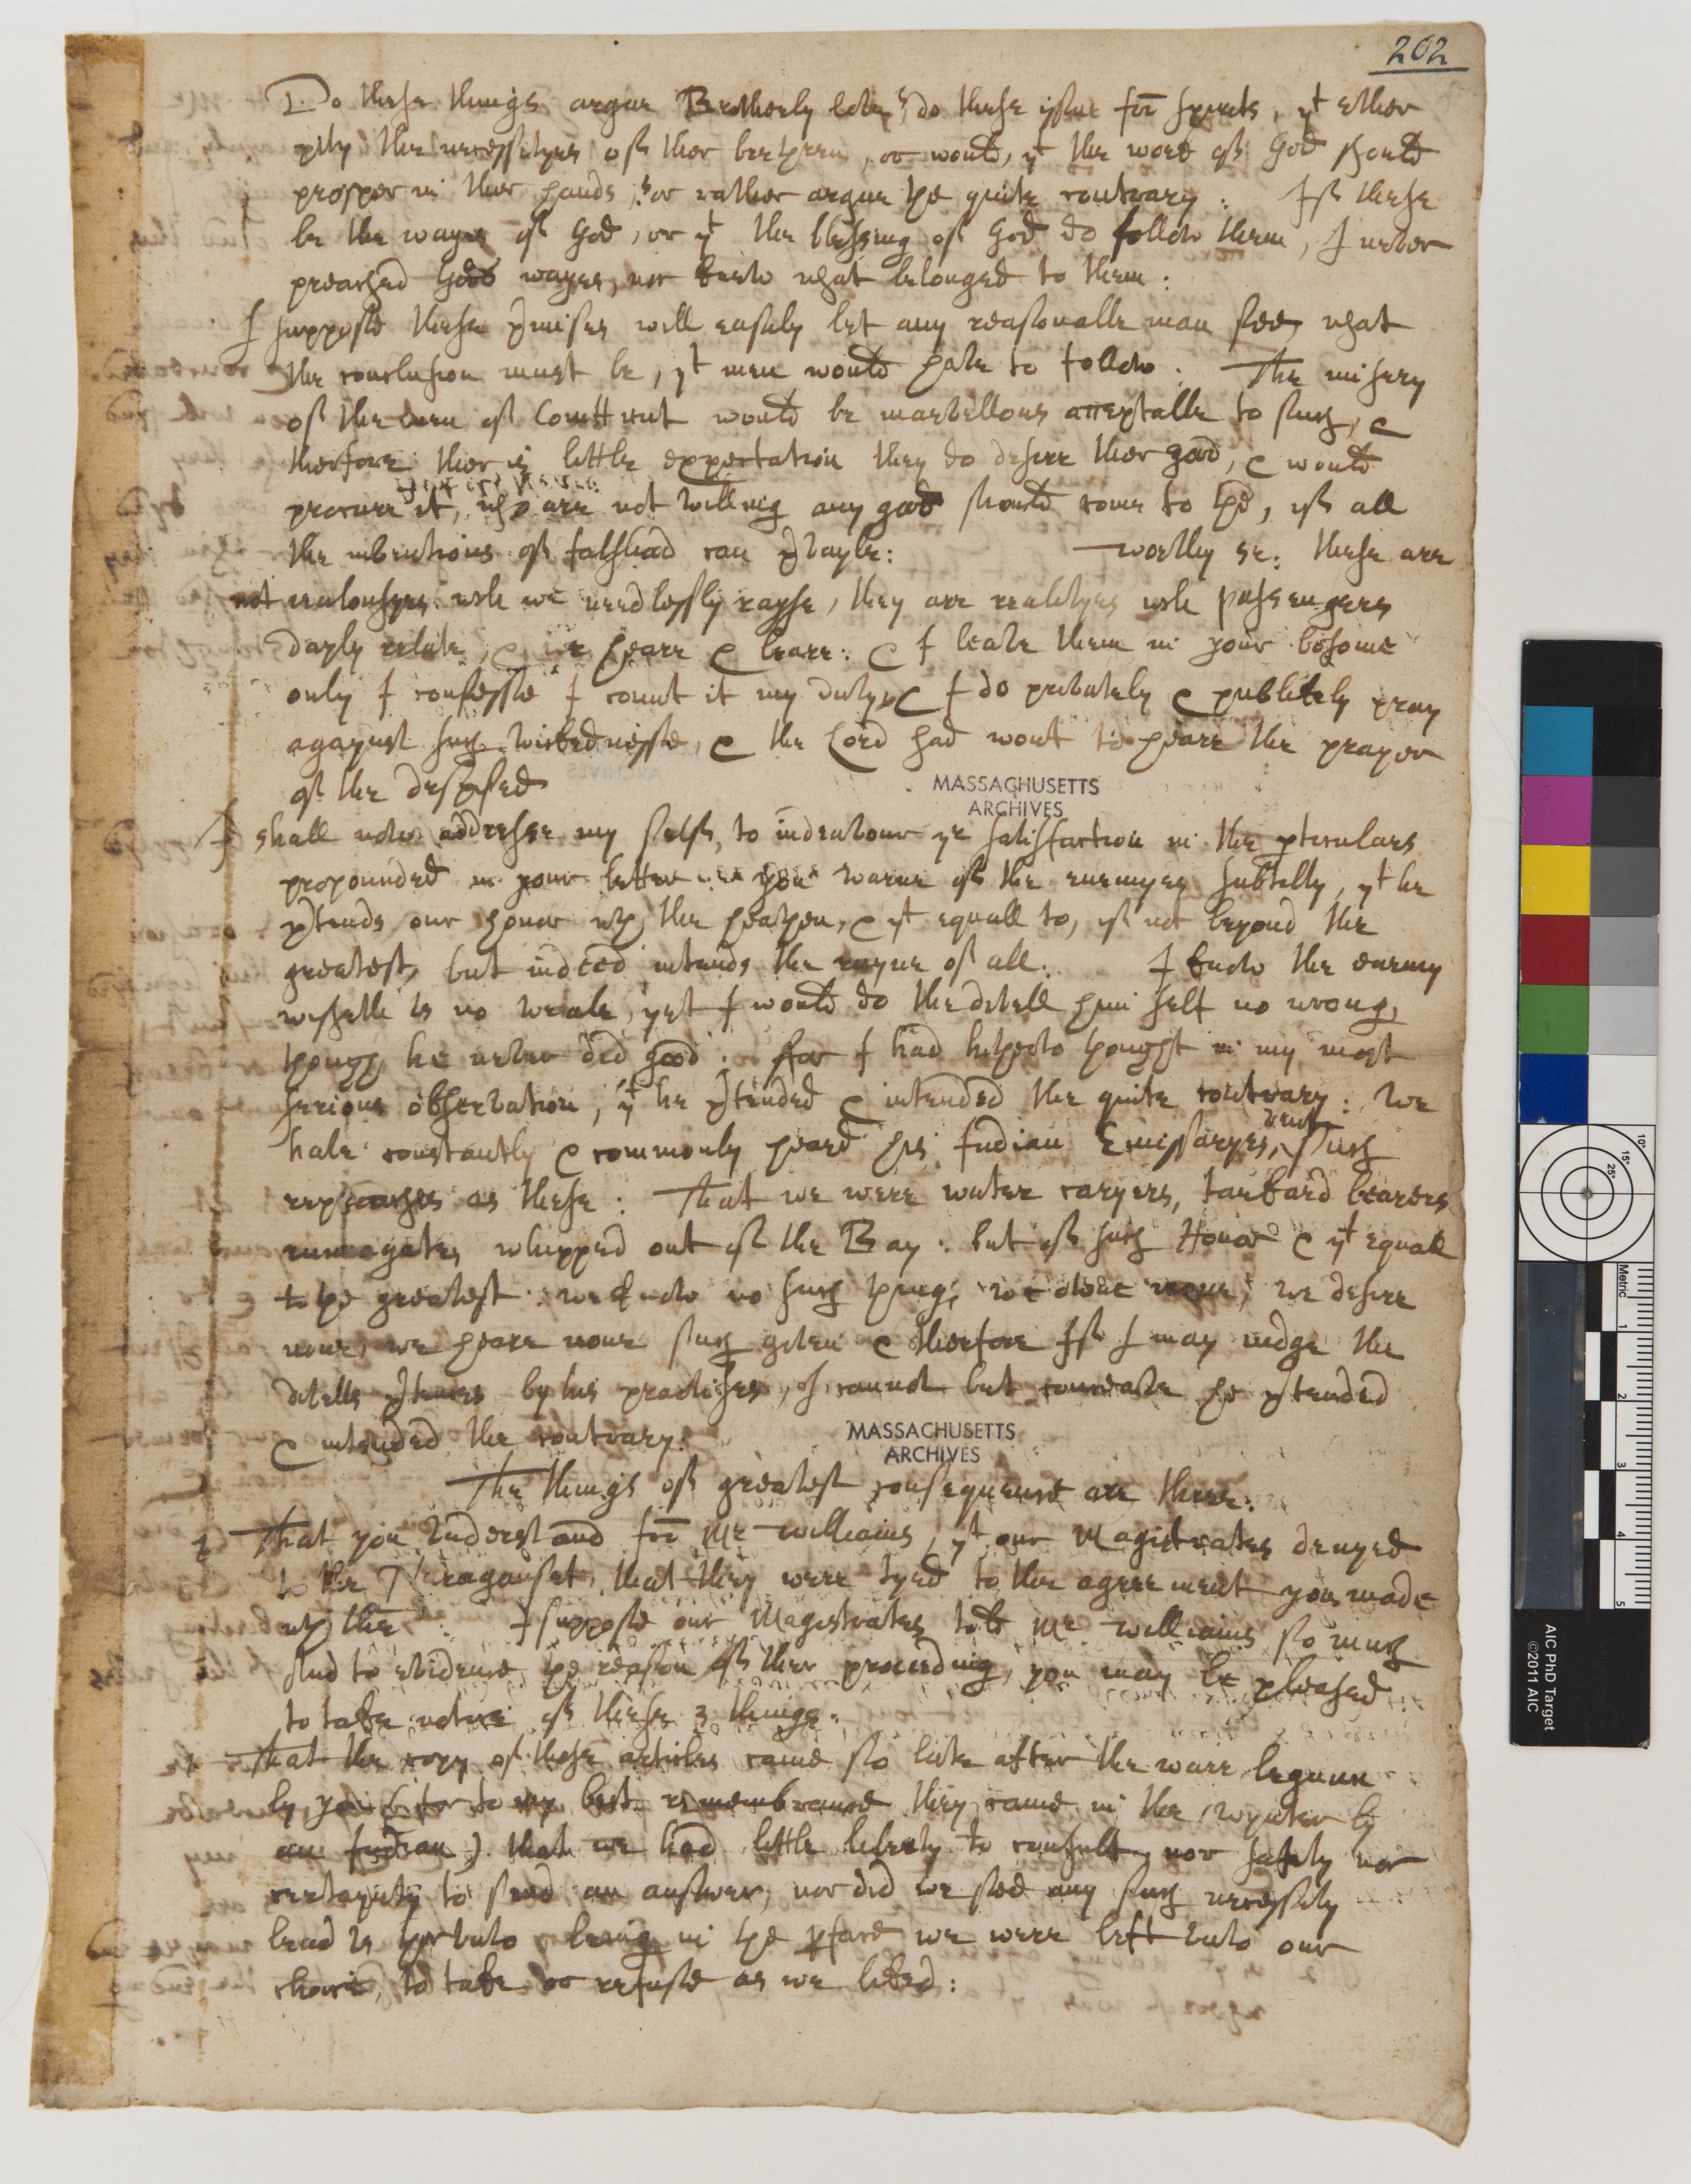 202
Do these things argue Brotherly love? do these issue frō spirits, yt ether
pity the necessityes of ther brethren, or would, yt the work of God should
prosper in ther hands, or rather argue the quite contrary: If these
be the wayes of God, or yt the blessing of God do follow them, I never
preached Gods wayes, nor knew what belonged to them:
I suppose these pmises will easily let any reasonalle man see, what
the conclusion must be, yt men would have to follow: The misery
of the men of Conttecut would be marvellous acceptable to such, &
therfore ther is little expectation they do desire ther good, & would
procure it, who are not willing any good should come to the, if all
the inventions of falshead can pvayle: worthy sr: these are
not jealousyes wch we needlessly rayse, they are realityes wch passengers
dayly relate, & we heare & beare: & I leave them in your bosome
only I confesse I count it my duty, & I do privately & publikely pray
agaynst such wickednesse, & the Lord had wont to heare the prayer
of the despised
MASSACHUSETTS
ARCHIVES
I shall now addresse my self, to indeavour yr satisfaction in the pticulars
propounded in your letter: you warne of the enemyes subtilty, yt he
ptends our honor wth the heathen, & yt equall to, if not beyond the
greatest, but indeed intends the ruyne of all. I know the enemy
wisheth us no weale, yet I would do the devell him self no wrong,
though he never did good: ffor I had hitherto thought in my most
serious observation, yt he ptended & intended the quite contrary: we
have constantly & commonly heard his Indian Emissaryes, vent such
reproaches as these: That we were water caryers, tankard bearers
runnagates whipped out of the Bay: but of such Honor & yt equall
to the greatest we know no such thing, we owne none, we desire
none, we heare none such given & therfore If I may judge the
devells ptences by his practises, I cannot but conceave he ptended
& intended the contrary.
MASSACHUSETTS
ARCHIVES
The things of greatest consequence are three:
1 That you understand frō Mr Williams, yt our Magistrates denyed
to the Naraganset, that they were tyed to the agreement you made
wth thē I suppose our Magistrates told Mr Williams so much
and to evidence the reason of ther proceeding, you may be pleased
to take notice of these 3 things.
1 That the copy of those articles came so late after the warr begunn
by you (for to my best remembrance they came in the wynter by
an Indian) that we had little liberty to consult, nor safely nor
certaynty to send an answer, nor did we see any such necessity
lead us therunto being in the pface we were left unto our
choice, to take or refuse as we liked: